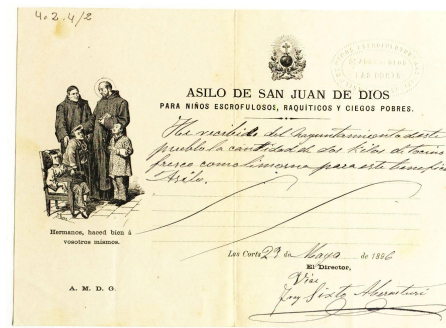 4.2.4/2
ASILO DE SAN JUAN DE DIOS
PARA NIÑOS ESCROFULOSOS, RAQUÍTICOS Y CIEGOS POBRES.
He recibido del Ayuntamiento de este
pueblo la cantidad de dos kilos de tocino
fresco como limosna para este benéfico
Asilo.
Hermanos, haced bien á
vosotros mismos.
Las Corts 29 de Mayo de 1896
El Director,
A. M. D. G.
Fray Sixto